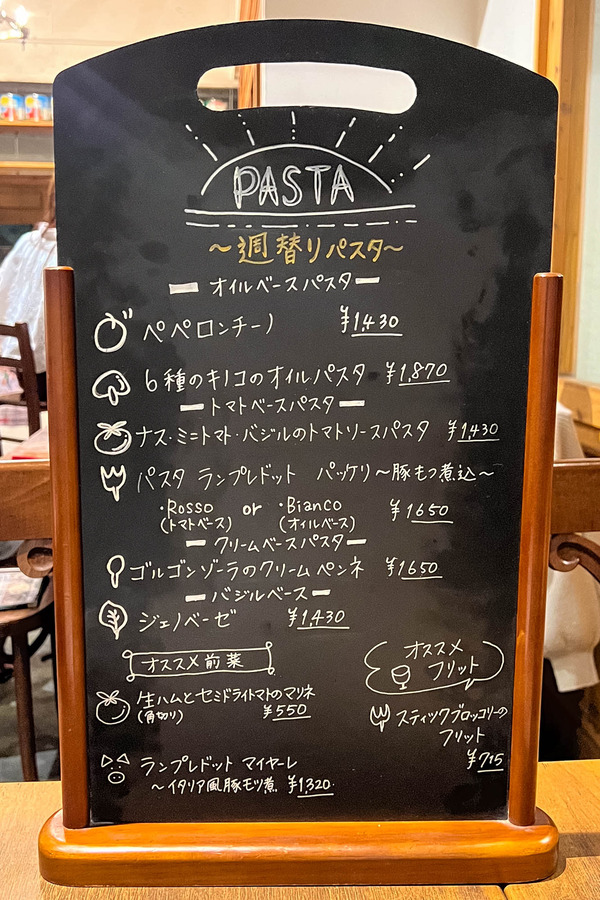 PASTA
〜週替りパスタ〜
オイルベースパスタ
ペペロンチーノ ¥1,430
6種のキノコのオイルパスタ ¥1,870
トマトベースパスタ
ナス・ミニトマト・バジルのトマトソースパスタ ¥1,430
パスタ ランプレドット パッケリ〜豚もつ煮込〜
・Rosso or ・Bianco ¥1650
(トマトベース) (オイルベース)
クリームベースパスタ
ゴルゴンゾーラのクリームペンネ ¥1650
バジルベース
ジェノベーゼ ¥1,430
オススメ前菜
生ハムとセミドライトマトのマリネ
(角切り) ¥550
ランプレドット マイヤーレ
〜イタリア風豚モツ煮 ¥1320
オススメ
フリット
スティックブロッコリーの
フリット
¥715